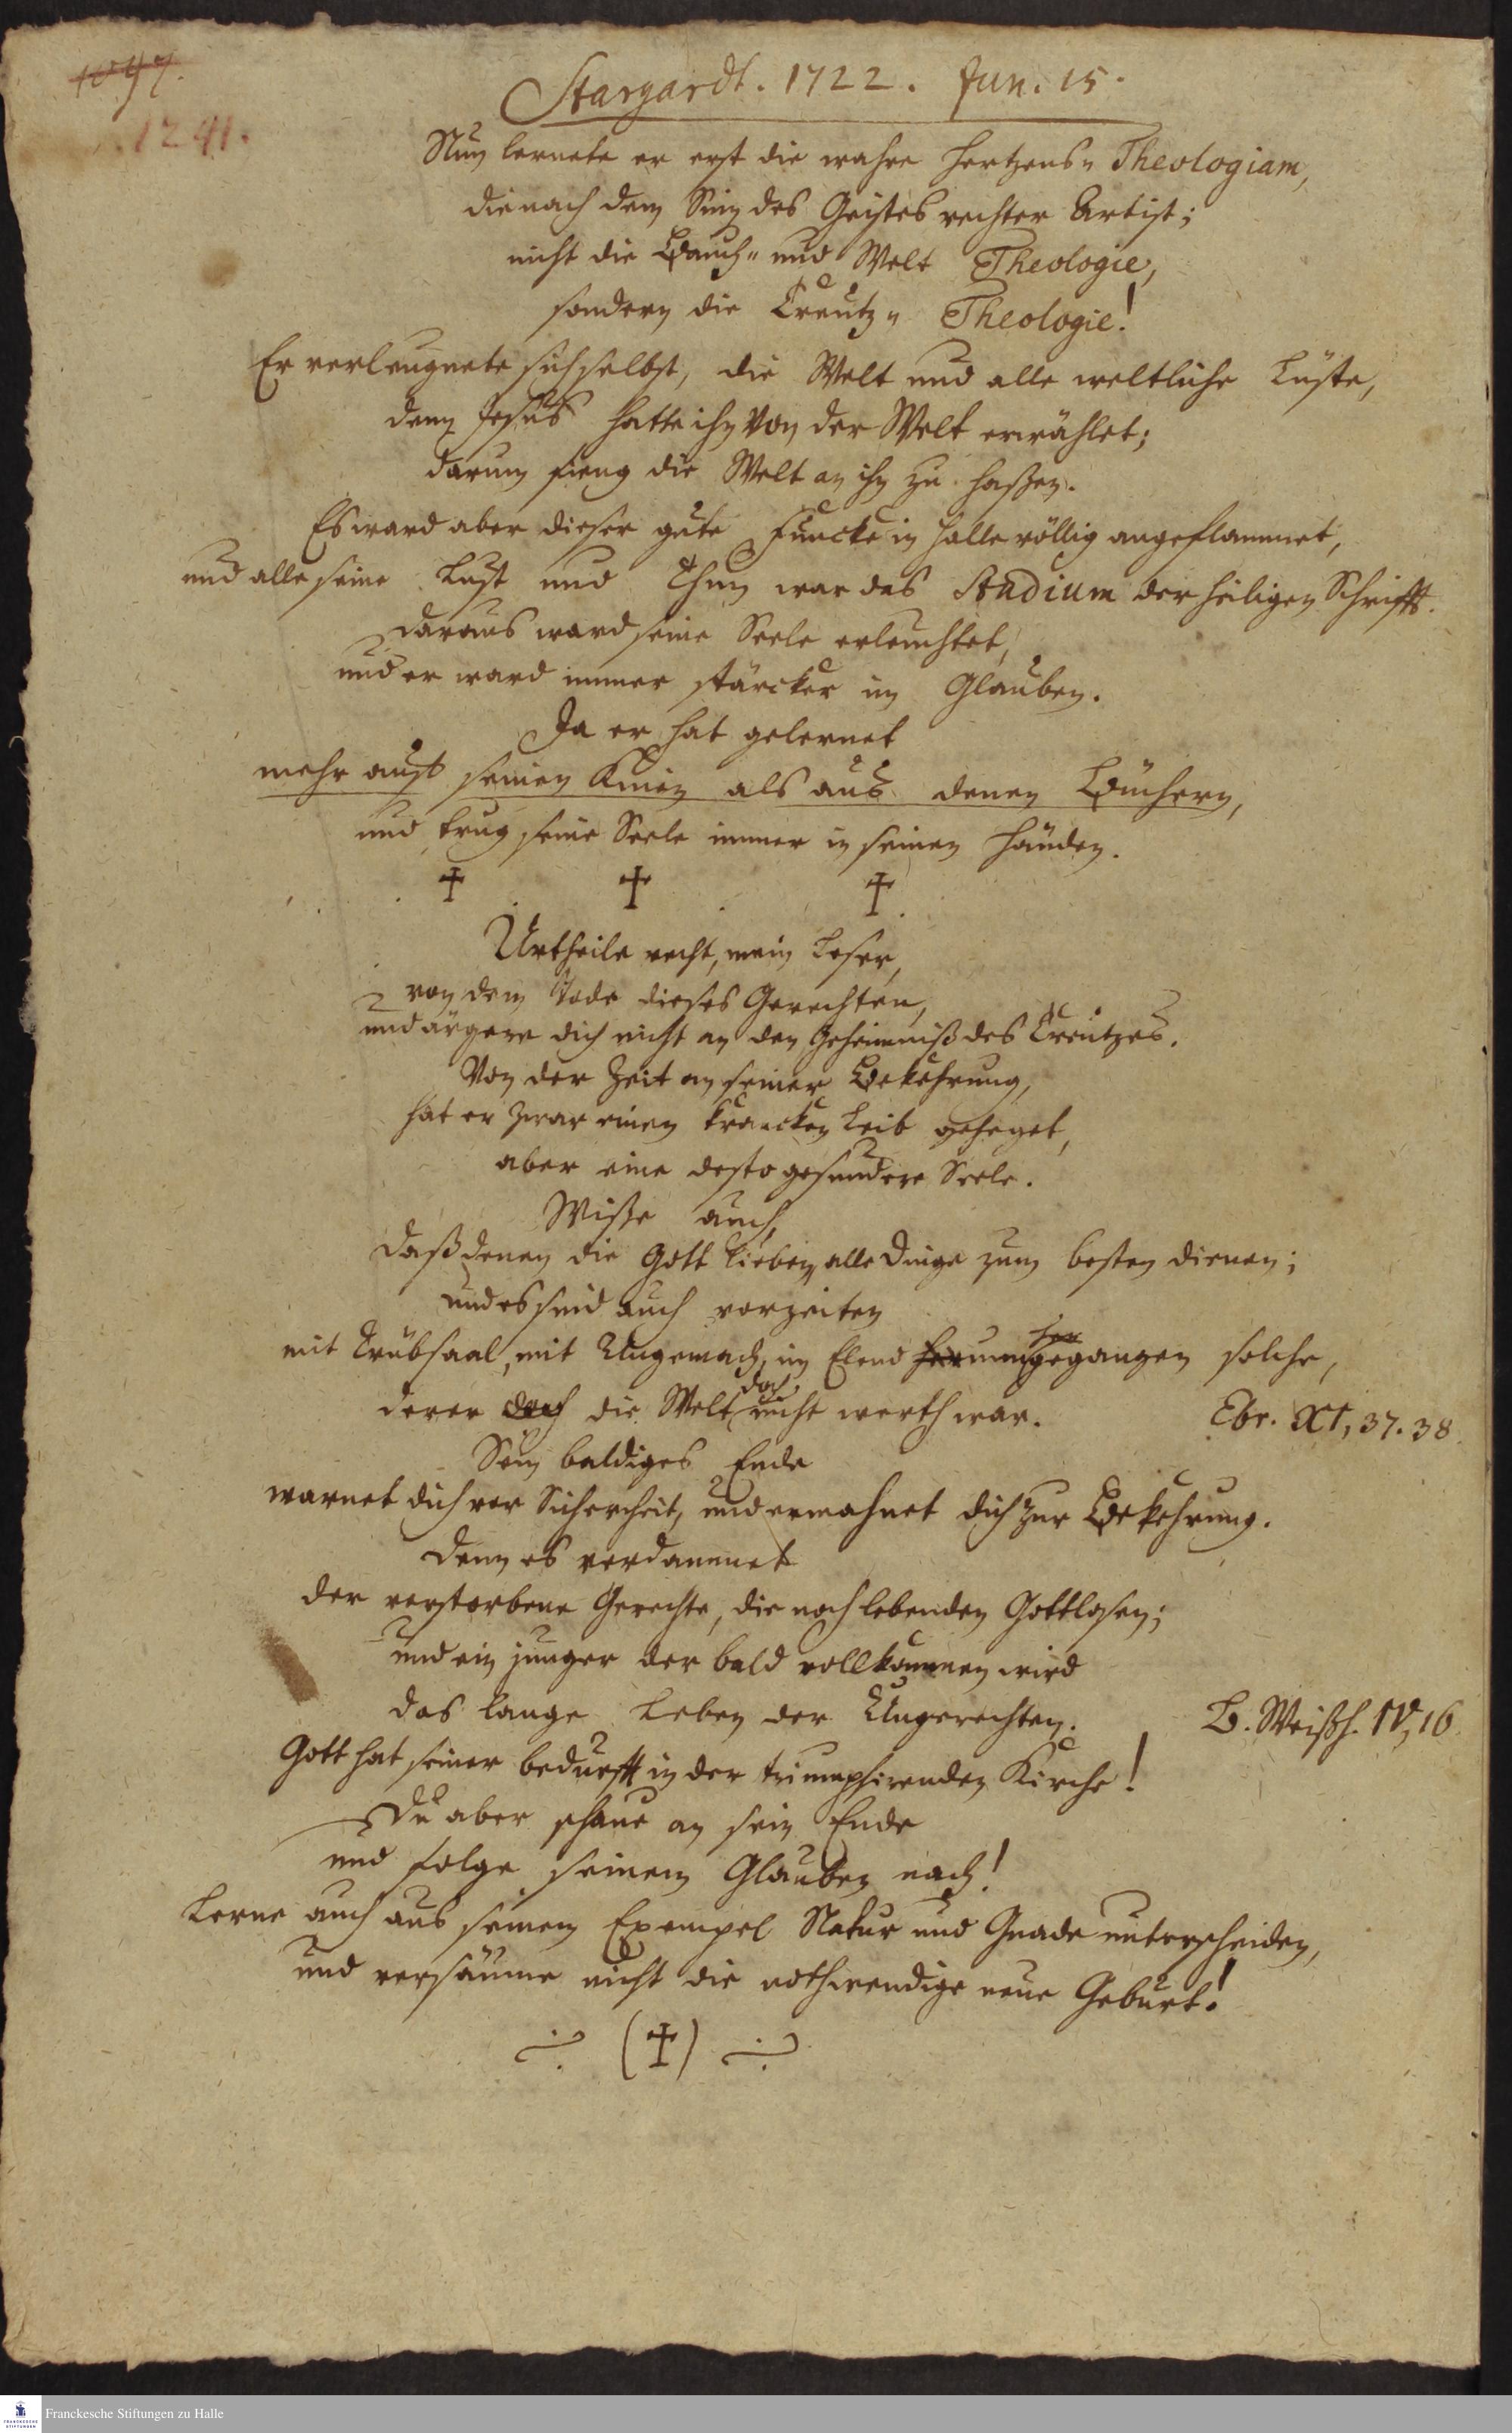 1047.
1241.
Stargardt. 1722. Jun. 15.
Nun lernete er erst die wahre Hertzens- Theologiam,
die nach dem Sinn des Geistes rechter Art ist;
nicht die Bauch- und Welt Theologie,
sondern die Creutz- Theologie!
Er verleugnete sich selbst, die Welt und alle weltliche Lüste,
denn Jesus hatte ihn von der Welt erwählet;
darum fieng die Welt an ihn zu haßen.
Es ward aber dieser gute Funcke in Halle völlig angeflammet,
und alle seine Lust und Thun war das Studium der heiligen Schrifft.
Daraus ward seine Seele erleuchtet,
und er ward immer stärcker im Glauben.
Da er hat gelernet
mehr auf seinen Knien als aus denen Büchern,
und trug seine Seele immer in seinen Händen.
Urtheile recht, mein Leser,
von dem Tode dieses Gerechten,
und ärgere dich nicht an den Geheimniß des Creutzes.
Von der Zeit an seiner Bekehrung,
hat er zwar einen krancken Leib geheget,
aber eine desto gesundere Seele.
Wiße auch,
daß denen die Gott lieben, alle Dinge zum besten dienen;
und es sind auch vorzeiten
mit Trübsaal, mit Ungemach, im Elend herumgegangen solche,
derer die Welt doch nicht werth war. Ebr. XI, 37. 38.
Sein baldiges Ende
warnet dich vor Sicherheit, und ermahnet dich zur Bekehrung.
Denn es verdammet
der verstorbene Gerechte, die noch lebenden Gottlosen;
und ein junger der bald vollkommen wird
das lange Leben der Ungerechten. B. Weißh. IV, 16
Gott hat seiner bedurfft in der triumphirenden Kirche!
Du aber schaue an sein Ende
und folge seinem Glauben nach!
Lerne auch aus seinem Exempel Natur und Gnade unterscheiden,
und versäume nicht die nothwendige neue Geburt!
Franckesche Stiftungen zu Halle